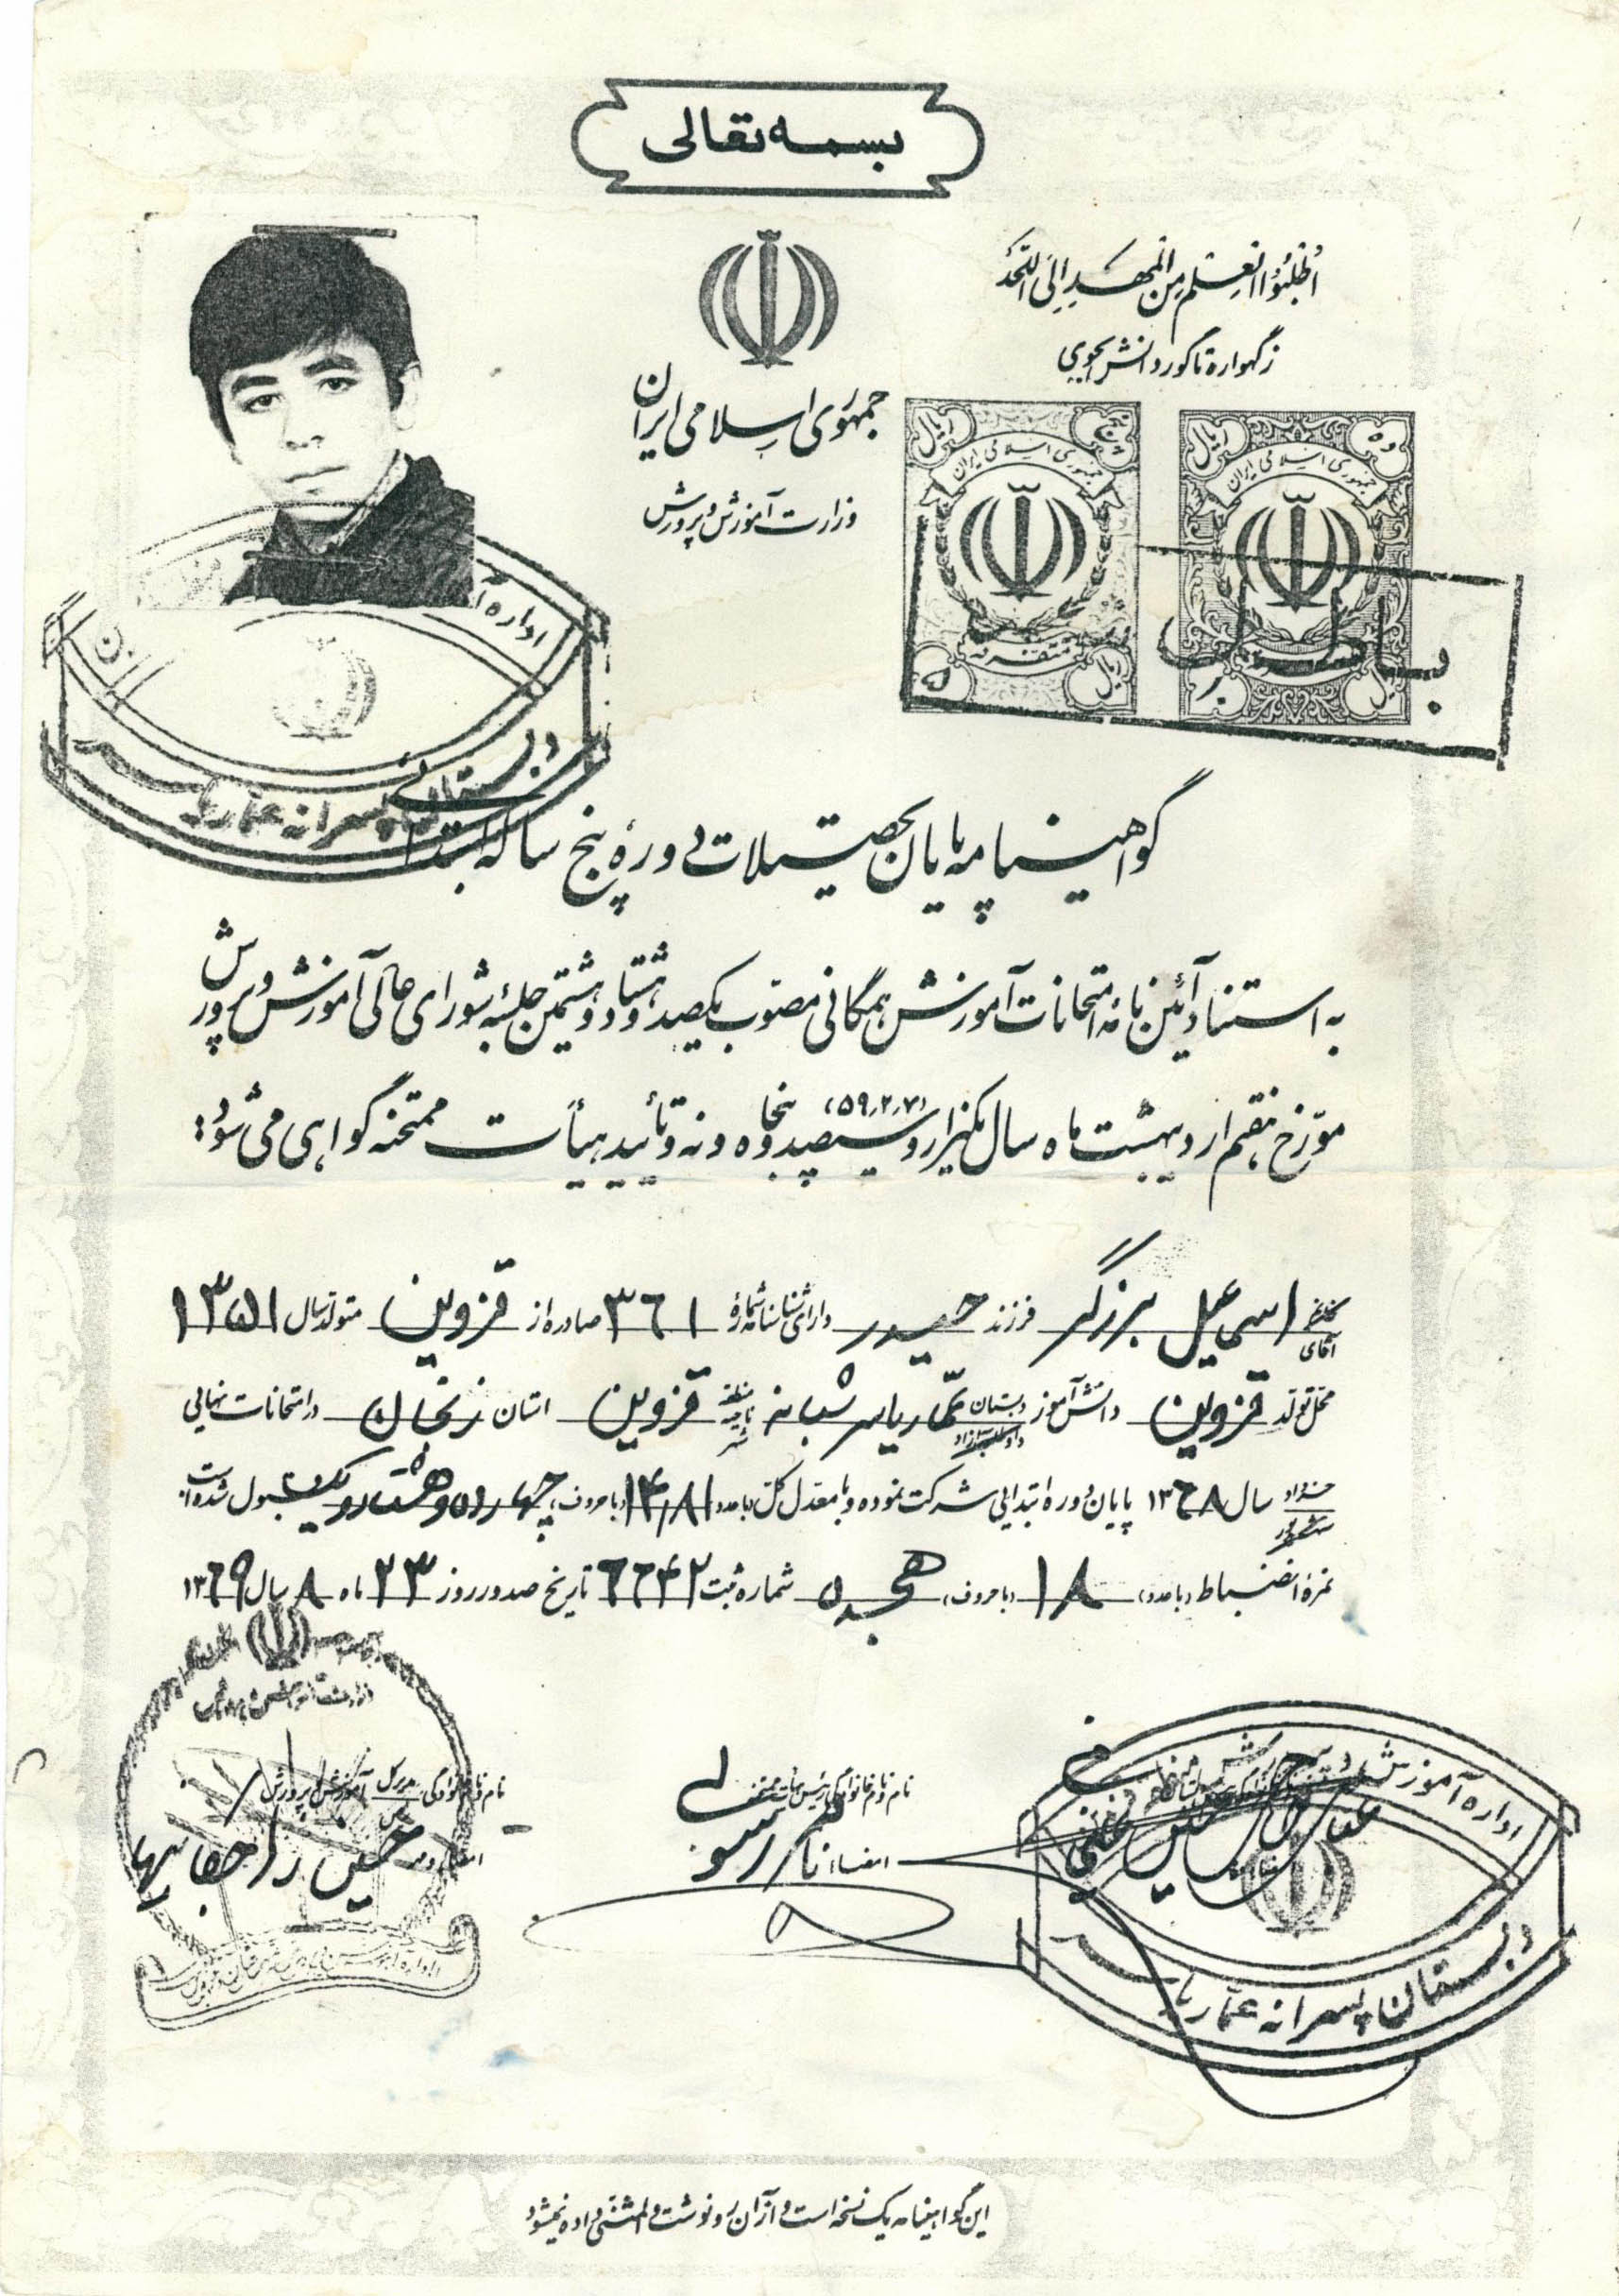 بسمه تعالی
اُطْلُبُوُا الْعِلْمَ مِنَ الْمَهْدِ اِلَی اللَّحْدْ
ز گهواره تا گور دانش بجوی
جمهوری اسلامی ایران
وزارت آموزش و پرورش
ریال
جمهوری اسلامی ایران
متفرقه
۵
ریال
ده ریال
جمهوری اسلامی ایران
باطل شد
اداره آ
دبستان پسرانه عمار یاسر
گواهینامه پایان تحصیلات دورهٔ پنج ساله ابتدائی
به استناد آئین نامه امتحانات آموزش همگانی مصوب یکصد و هشتاد و هشتمین جلسهٔ شورای عالی آموزش و پرورش
مورّخ هفتم اردیبهشت ماه سال یکهزار و سیصد و پنجاه و نه (۵۹٫۲٫۷) و تأیید هیأت ممتحنه گواهی می شود:
آقای اسمعیل برزگر فرزند حیدر دارای شناسنامه شمارهٔ ۳۶۱ صادره از قزوین متولد سال ۱۳۵۱
محل تولد قزوین دانش آموز دبستان عمّار یاسر شبانه منطقه ناحیه شهر قزوین استان زنجان در امتحانات نهایی
خرداد شهریور سال ۱۳۶۸ پایان دوره ابتدایی شرکت نموده و با معدل کل (با عدد) ۱۴/۸۱ (با حروف) چهارده و هشتاد و یک قبول شده است.
نمرهٔ انضباط (با عدد) ۱۸ (با حروف) هجده شماره ثبت ۶۶۴۲ تاریخ صدور روز ۲۳ ماه ۸ سال ۱۳۶۹
وزارت آموزش و پرورش
نام و نام خانوادگی مدیر کل رئیس آموزش و پرورش
امضاء و مهر حسین رزاجقانیها
نام و نام خانوادگی رئیس هیأت ممتحنه
امضاء
اداره آموزش و پرورش
دبستان پسرانه عمار یاسر
این گواهینامه یک نسخه است و از آن رونوشت و المثنی داده نمیشود